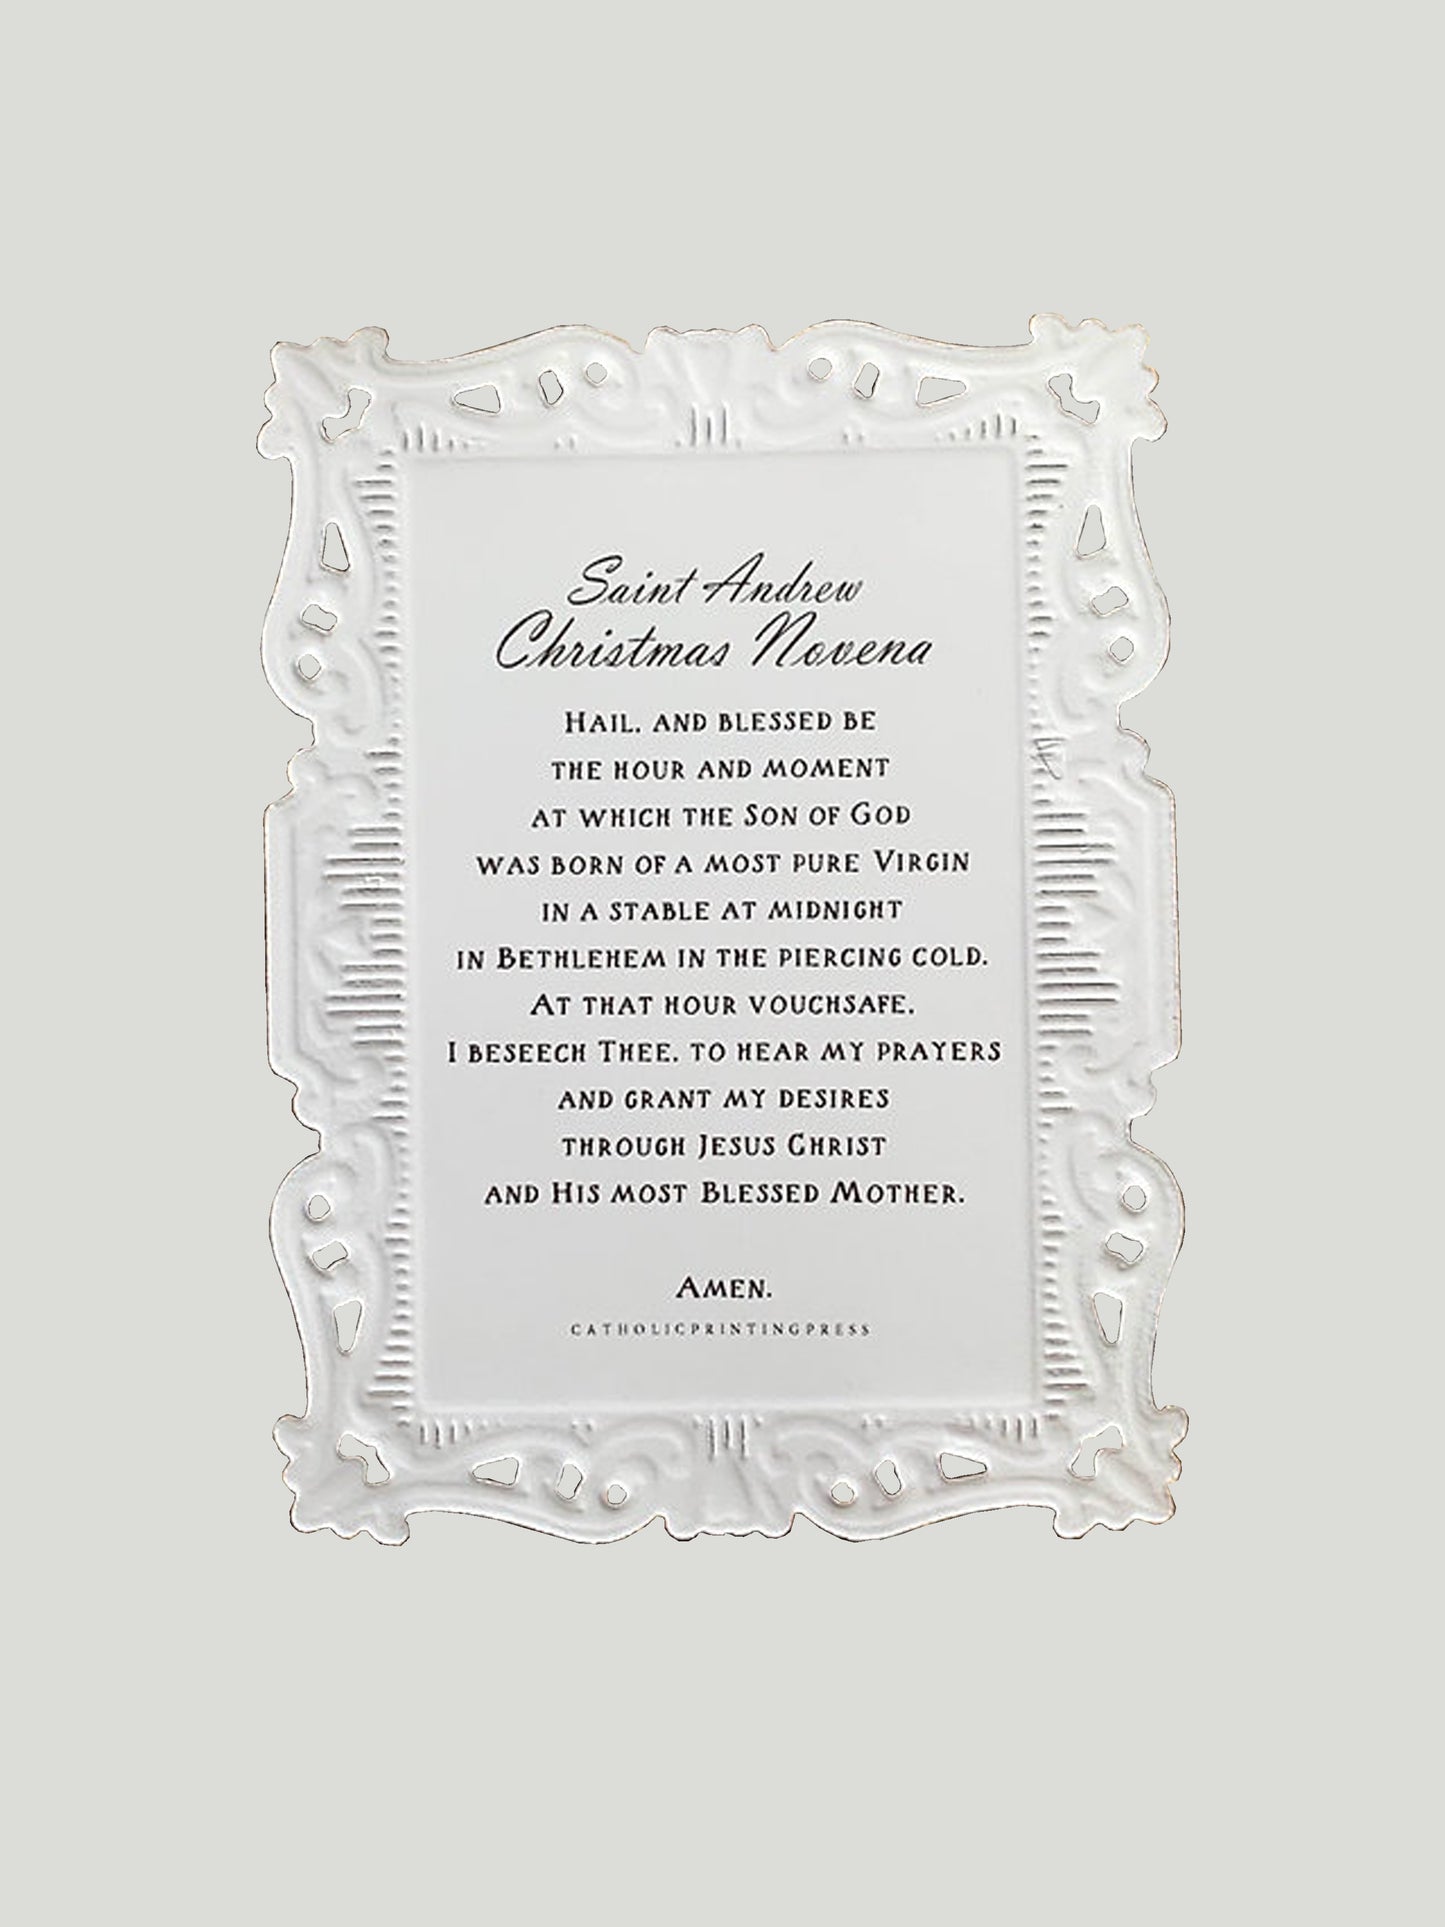 Saint Andrew
Christmas Novena
Hail, and blessed be
the hour and moment
at which the Son of God
was born of a most pure Virgin
in a stable at midnight
in Bethlehem in the piercing cold.
At that hour vouchsafe,
I beseech Thee, to hear my prayers
and grant my desires
through Jesus Christ
and His most Blessed Mother.
Amen.
CATHOLICPRINTINGPRESS